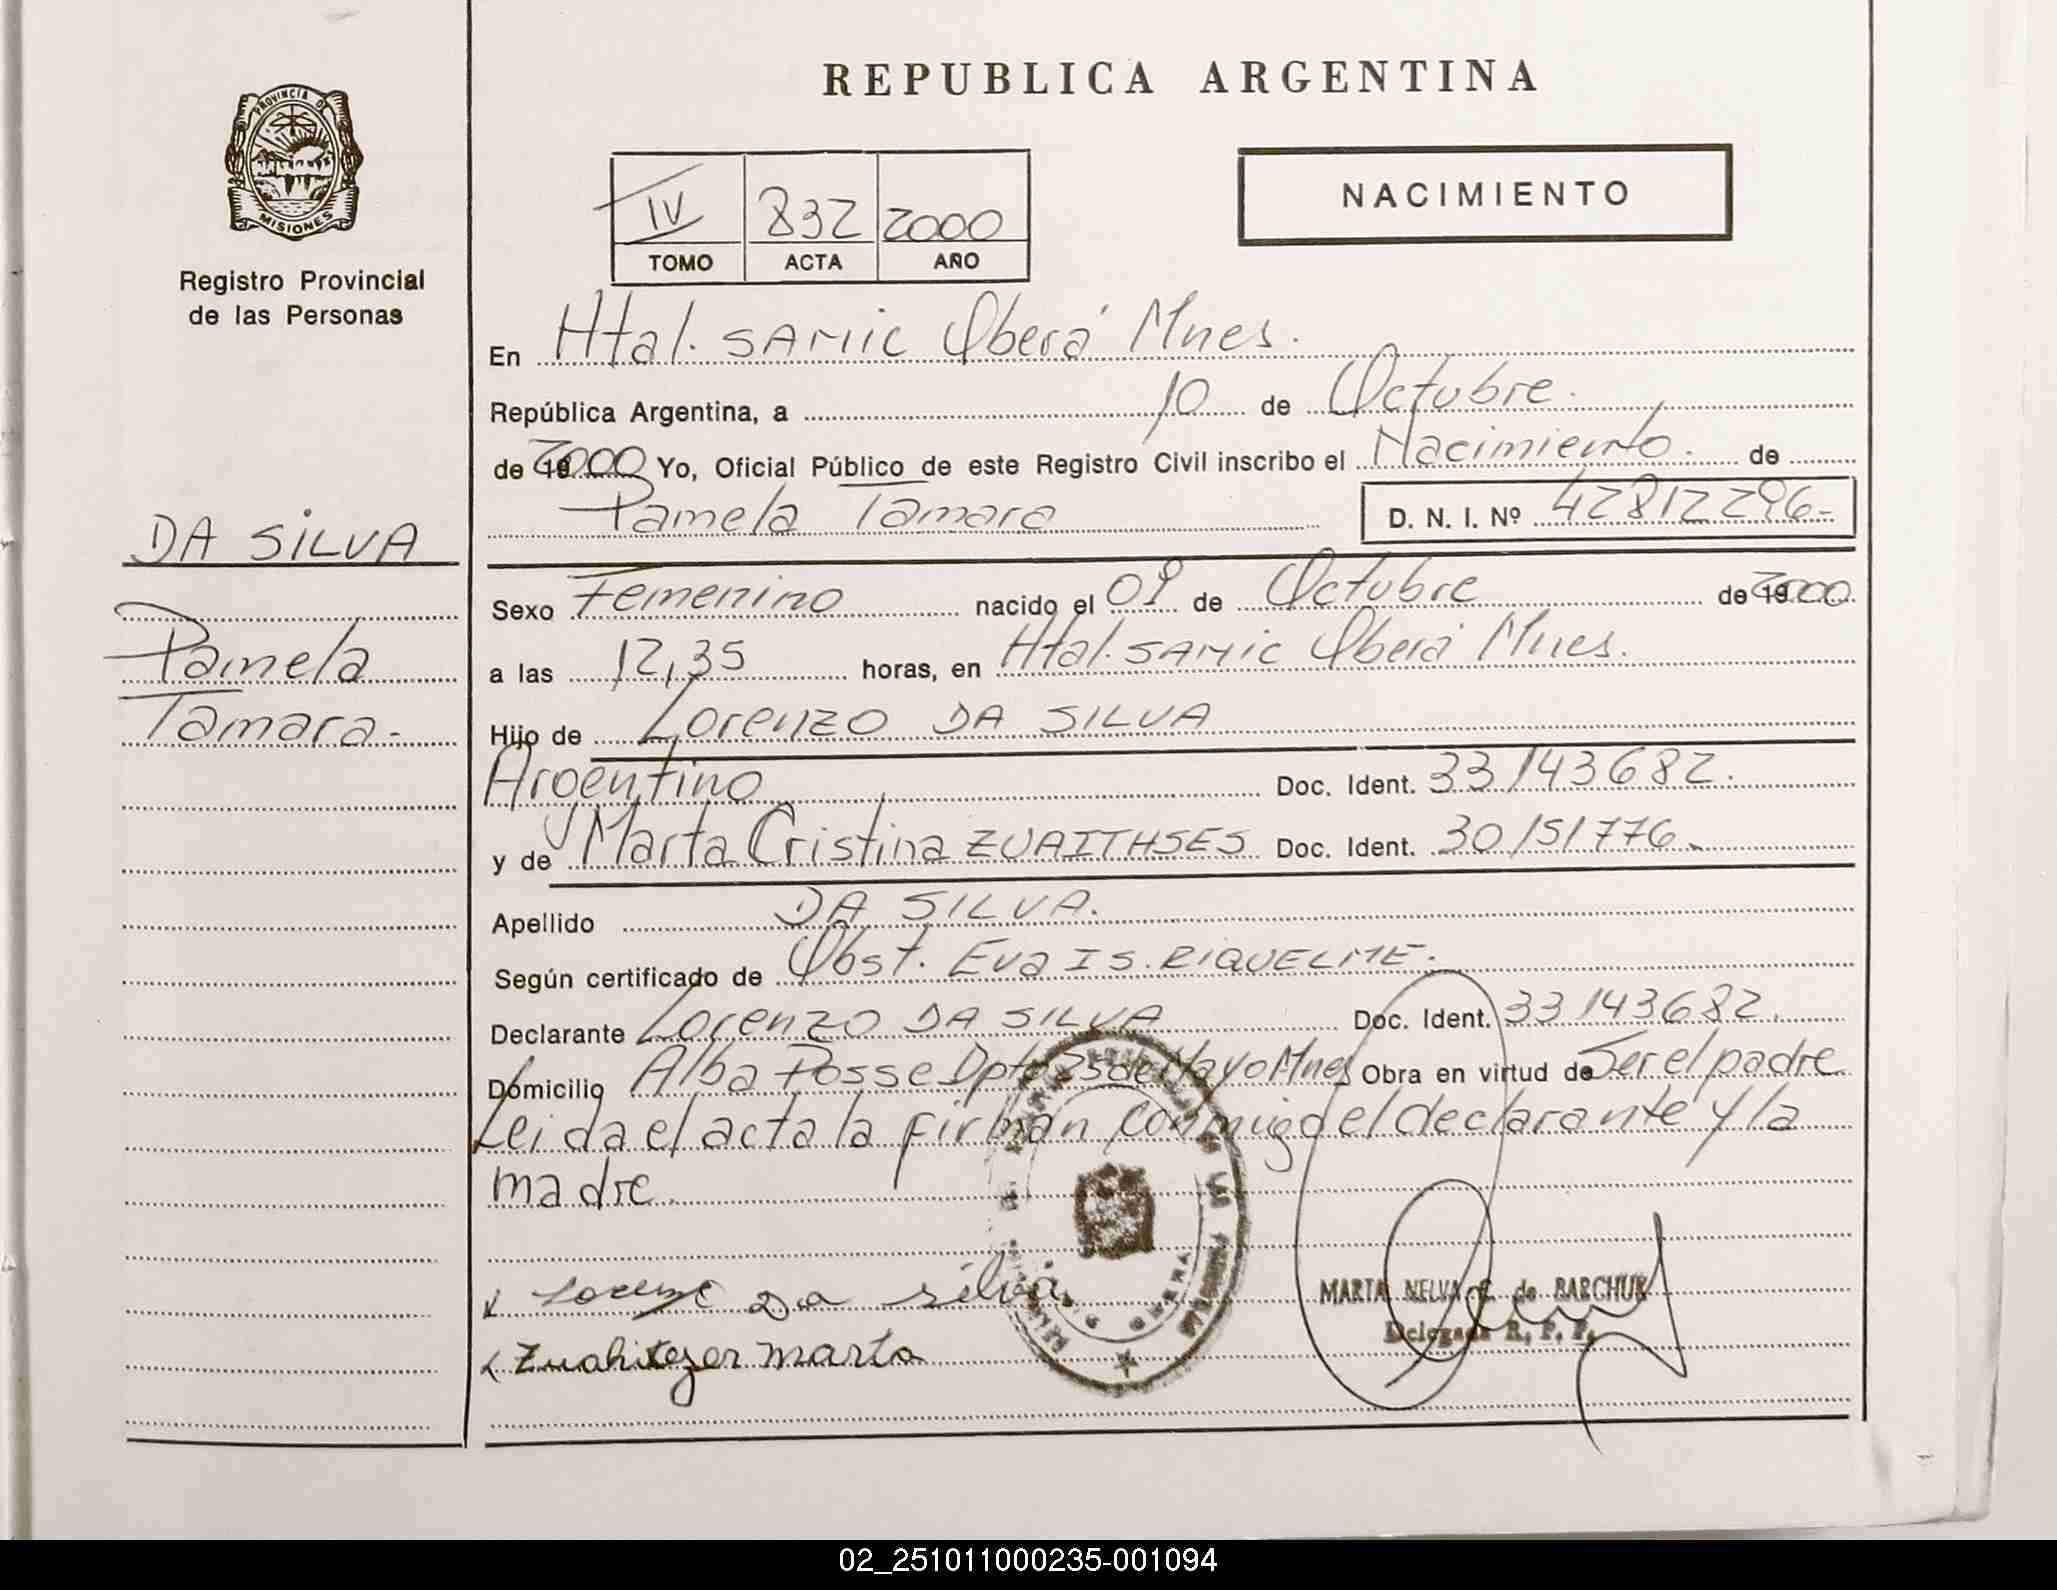 REPUBLICA ARGENTINA
PROVINCIA D
MISIONES
Registro Provincial
de las Personas
IV 832 2000
TOMO ACTA AÑO
NACIMIENTO
En Htal. SAMIC Oberá Mnes.
República Argentina, a 10 de Octubre.
de 2000 Yo, Oficial Público de este Registro Civil inscribo el Nacimiento. de
Pamela Tamara D. N. I. Nº 42812296-
DA SILVA
Pamela
Tamara-
Sexo Femenino nacido el 09 de Octubre de 2000
a las 12,35 horas, en Htal. SAMIC Oberá Mnes.
Hijo de Lorenzo DA SILVA
Argentino Doc. Ident. 33143682.
y de Marta Cristina ZUAITHSES Doc. Ident. 30151776.
Apellido DA SILVA.
Según certificado de Obst. Eva IS. RIQUELME.
Declarante Lorenzo DA SILVA Doc. Ident. 33143682.
Domicilio Alba Posse Dpto 25 de Mayo Mnes Obra en virtud de Ser el padre
Leida el acta la firman conmigo el declarante y la
madre.
Da silva
Zuahitezer marta
MARTA NELVA de BARCHUK
Delegada R. P. P.
02_251011000235-001094